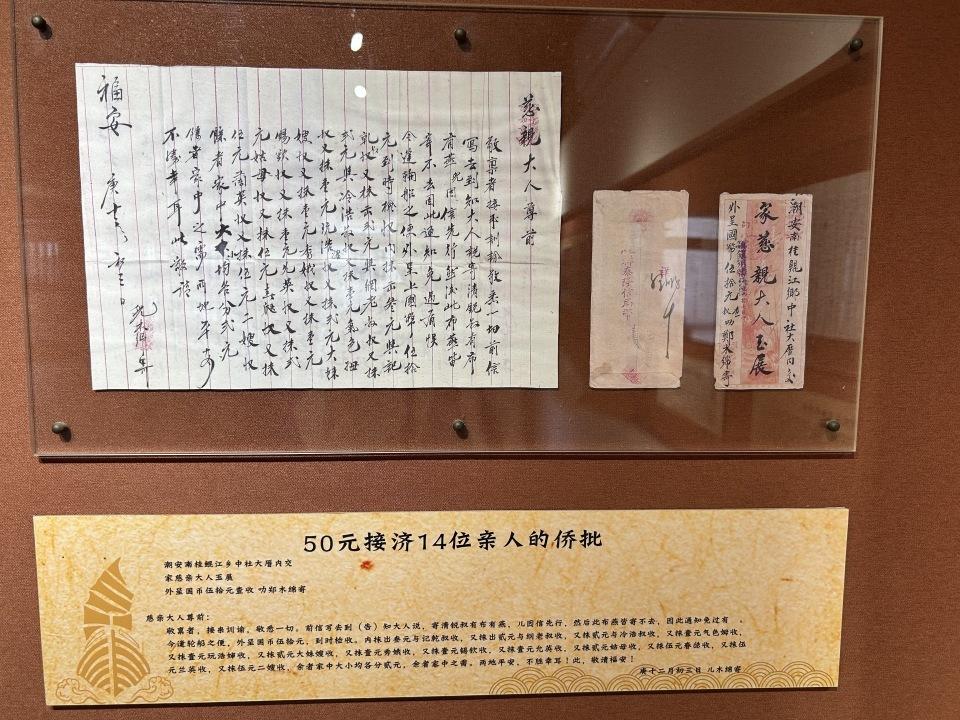 慈親大人尊前
敬稟者接來訓諭敬悉一切前信
寫去到知大人說寄清銳叔有布
有燕兒因信先行然後此布燕皆
寄不去因此通知免過有悞
今逢輪船之便外呈上國幣伍拾
元到時檢收內抹出叁元與記
乾叔收又抹出貳元與綱老叔收又抹
貳元與冷浩叔收又抹壹元氣色姆
收又抹壹元玩浩嬸收又抹貳元大妹
嫂收又抹壹元秀娥收又抹壹元
錫欽收又抹壹元允英收又抹貳
元姑母收又抹伍元春慾收又抹
伍元蘭英收又抹伍元二嫂收
餘者家中大小均各分貳元
餘者家中之需兩地平安
不勝幸耳此敬請
福安
庚十二月初三日
兒木綿稟
潮安南桂鯤江鄉中社大厝內交
家慈親大人玉展
外呈國幣伍拾元 查收叻鄭木綿寄
50元接济14位亲人的侨批
潮安南桂鲲江乡中社大厝内交
家慈亲大人玉展
外呈国币伍拾元查收 叻郑木绵寄
慈亲大人尊前：
敬禀者，接来训谕，敬悉一切。前信写去到（告）知大人说，寄清锐叔有布有燕，儿因信先行，然后此布燕皆寄不去，因此通知免过有 。
今逢轮船之便，外呈国币伍拾元，到时检收。内抹出叁元与记乾叔收，又抹出贰元与纲老叔收，又抹贰元与冷浩叔收，又抹壹元气色姆收，
又抹壹元玩浩婶收，又抹贰元大妹嫂收，又抹壹元秀娥收，又抹壹元锡钦收，又抹壹元允英收，又抹贰元姑母收，又抹伍元春慾收，又抹伍
元兰英收，又抹伍元二嫂收，余者家中大小均各分贰元，余者家中之需。两地平安，不胜幸耳！此，敬请福安！
庚十二月初三日 儿木绵寄